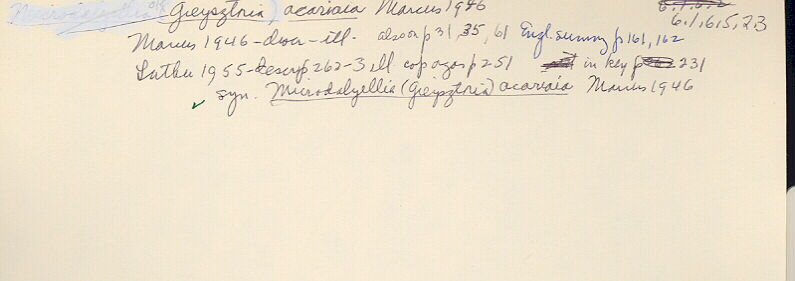 Microdalyellia (Gieysztoria) acariaia Marcus 1946 6.1.6.5.23
Marcus 1946-descr-ill. also on p 31, 35, 61 Engl. summy p 161, 162
Luther 1955-descr p 262-3 ill. cop. organ p 251 in key p 231
✓ syn. Microdalyellia (Gieysztoria) acariaia Marcus 1946